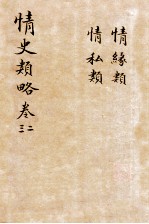 情緣類
情私類
情史類略卷二三